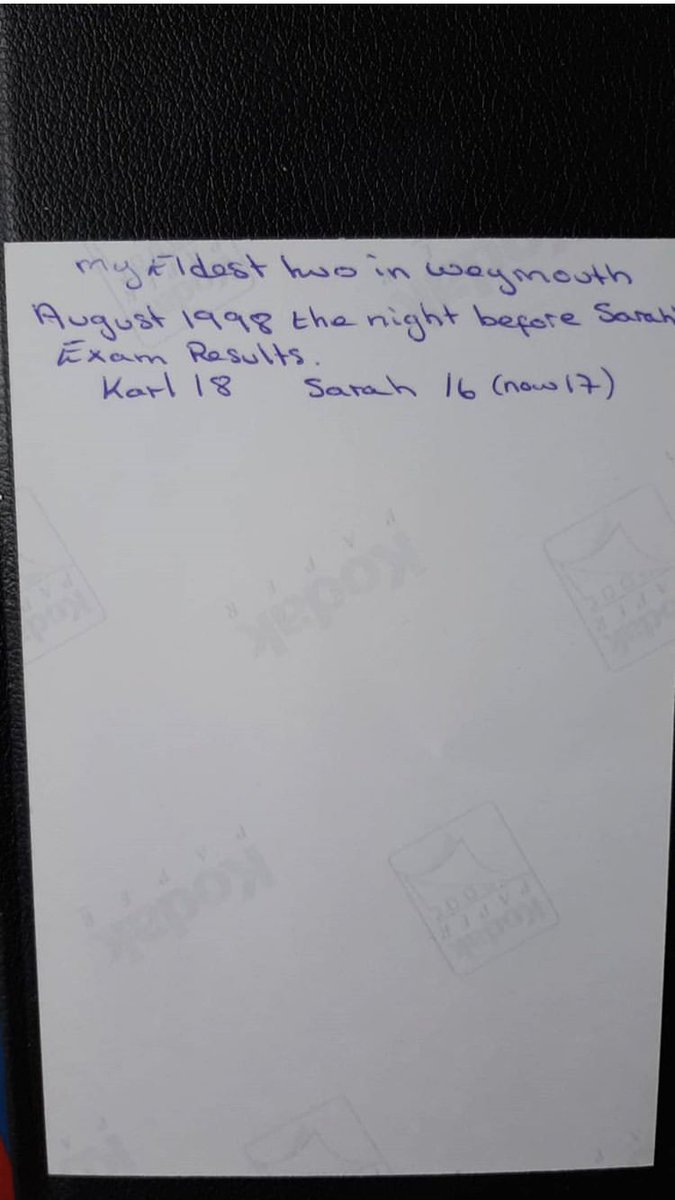 My Eldest two in weymouth
August 1998 the night before Sarah
Exam Results.
Karl 18 Sarah 16 (now 17)
Kodak
Kodak
Kodak
Kodak
Kodak